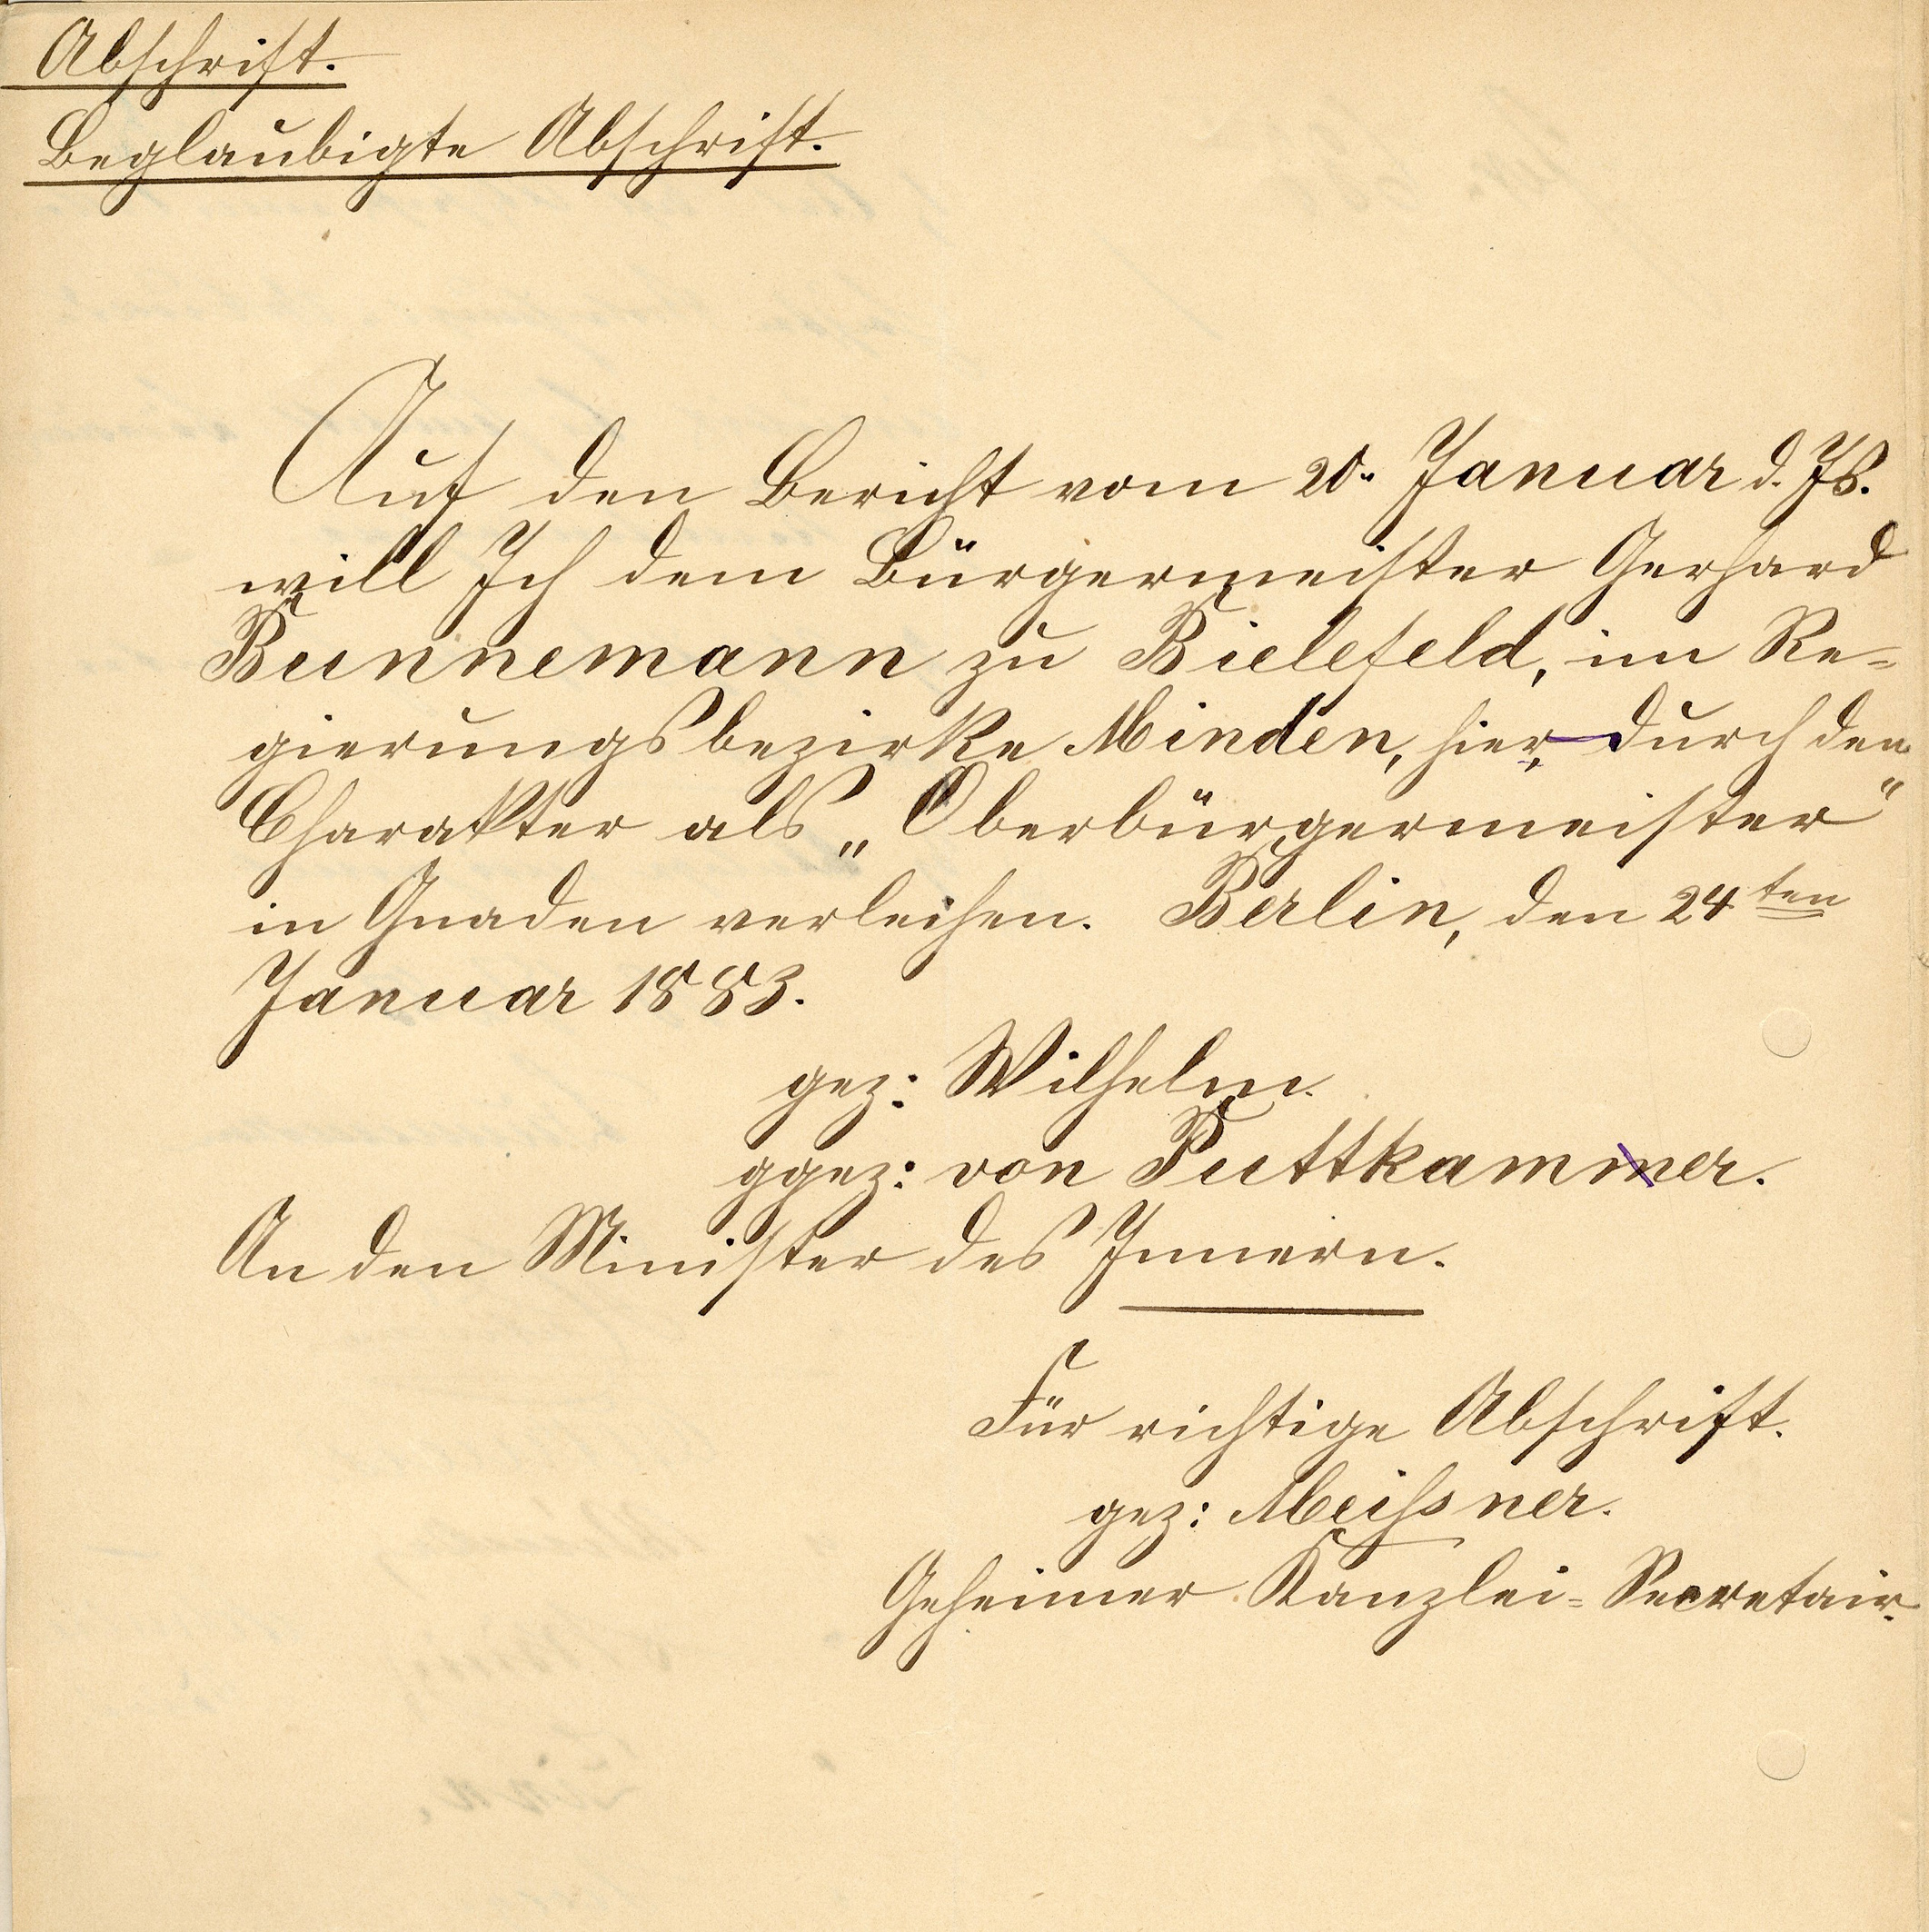 Abschrift.
Beglaubigte Abschrift.
Auf den Bericht vom 20. Januar d. Js.
will Ich dem Bürgermeister Gerhard
Bunnemann zu Bielefeld, im Re-
gierungsbezirke Minden, hier, durch den
Charakter als „Oberbürgermeister“
in Gnaden verleihen. Berlin, den 24ten
Januar 1883.
gez: Wilhelm.
ggez: von Puttkammer.
An den Minister des Innern.
Für richtige Abschrift.
gez: Meißner.
Geheimer Kanzlei-Secretair.